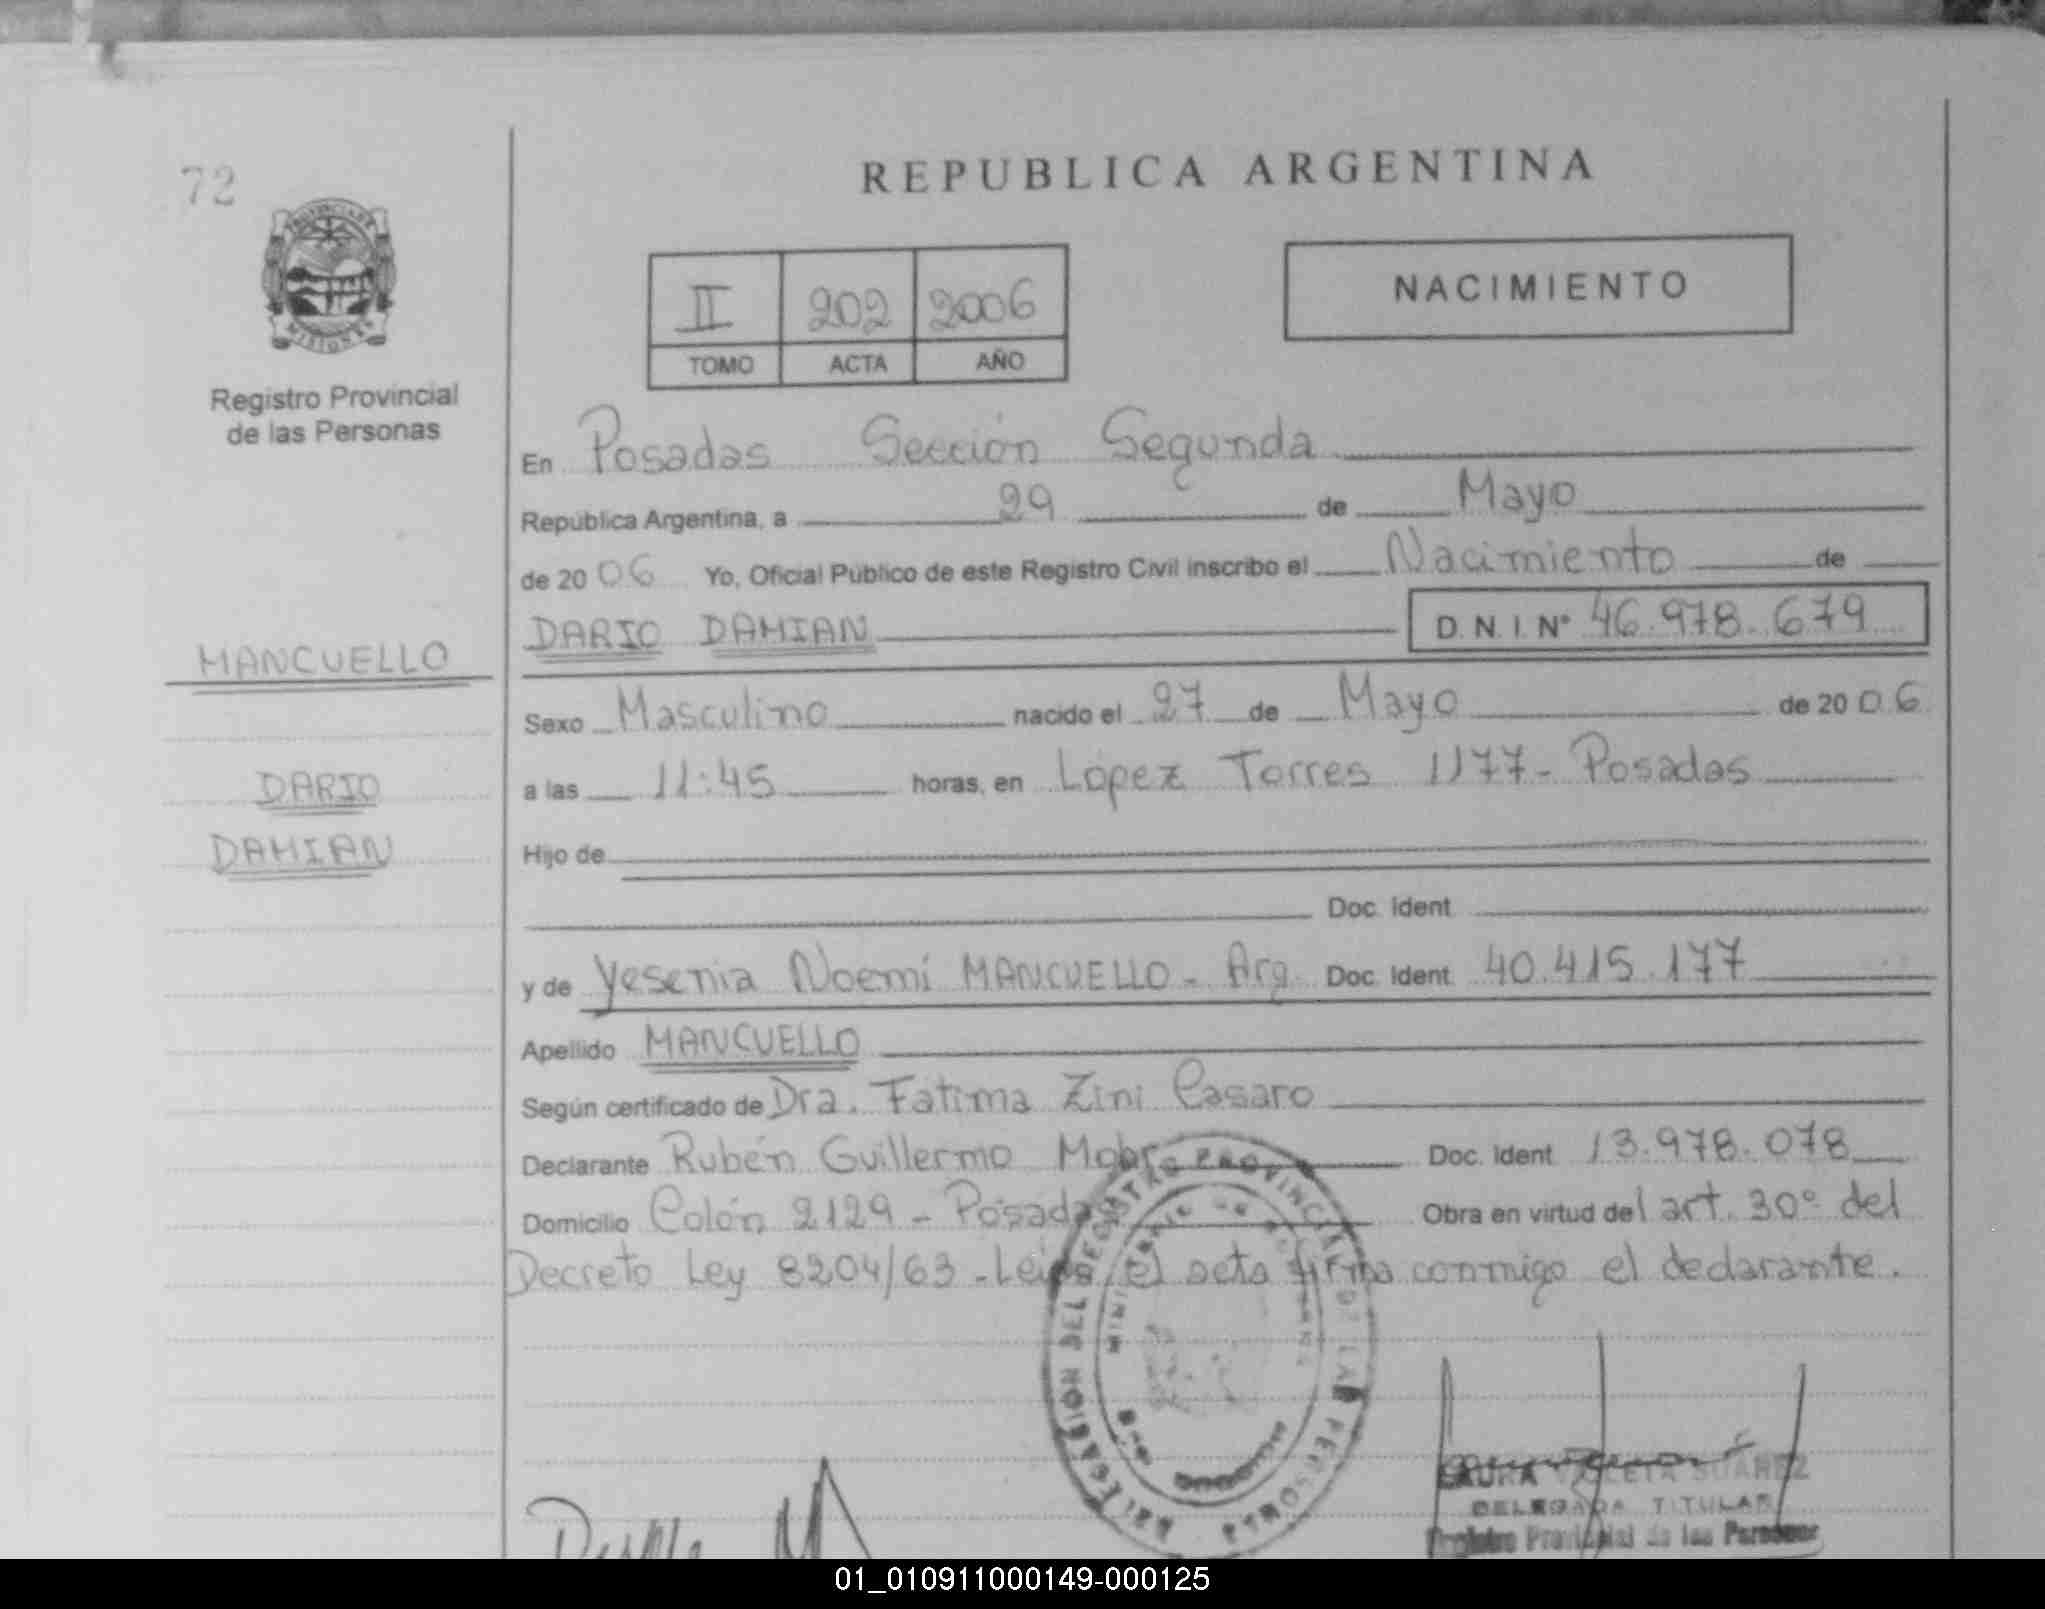 72
REPUBLICA ARGENTINA
PROVINCIA DE
MISIONES
Registro Provincial
de las Personas
II 202 2006
TOMO ACTA AÑO
NACIMIENTO
En Posadas Sección Segunda
República Argentina, a 29 de Mayo
de 20 06 Yo, Oficial Público de este Registro Civil inscribo el Nacimiento de
DARIO DAMIAN D.N.I. Nº 46.978.679
MANCUELLO
Sexo Masculino nacido el 27 de Mayo de 20 06
DARIO
a las 11:45 horas, en López Torres 1177 - Posadas
DAMIAN
Hijo de
Doc. Ident.
y de Yesenia Noemí MANCUELLO - Arg. Doc. Ident. 40.415.177
Apellido MANCUELLO
Según certificado de Dra. Fátima Zini Casaro
Declarante Rubén Guillermo Doc. Ident. 13.978.078
Domicilio Colón 2129 - Posadas Obra en virtud del art. 30º del
Decreto Ley 8204/63 - Leida el acta firma conmigo el declarante.
DELEGACION DEL REGISTRO PROVINCIAL DE LAS PERSONAS
LAURA VIOLETA SUAREZ
DELEGADA TITULAR
Registro Provincial de las Personas
01_010911000149-000125